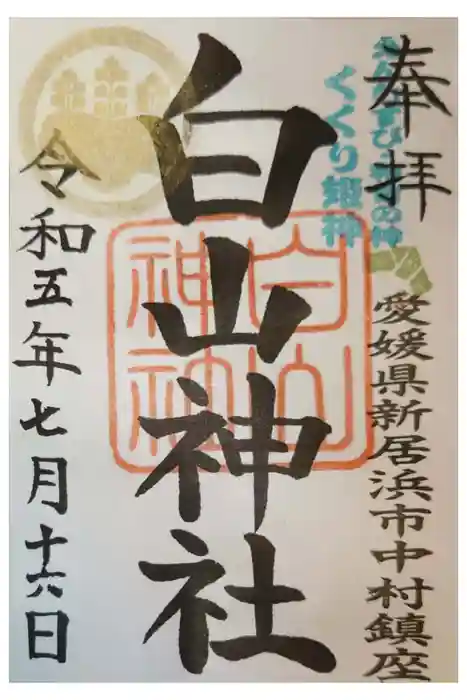 奉拝
くくり姫神
愛媛県新居浜市中村鎮座
白山神社
白山
神社
令和五年七月十六日